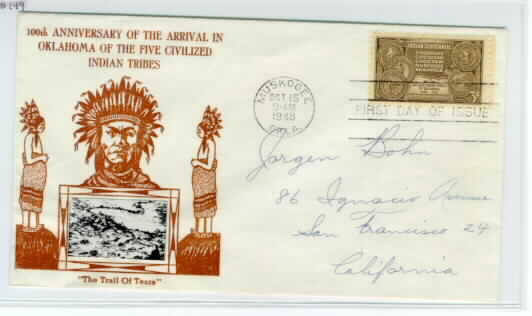 #149
100th ANNIVERSARY OF THE ARRIVAL IN
OKLAHOMA OF THE FIVE CIVILIZED
INDIAN TRIBES
INDIAN CENTENNIAL
MUSKOGEE
OCT 15
9-AM
1948
OKLA.
FIRST DAY OF ISSUE
Jorgen Bohn
86 Ignacio Avenue
San Francisco 24
California
"The Trail Of Tears"